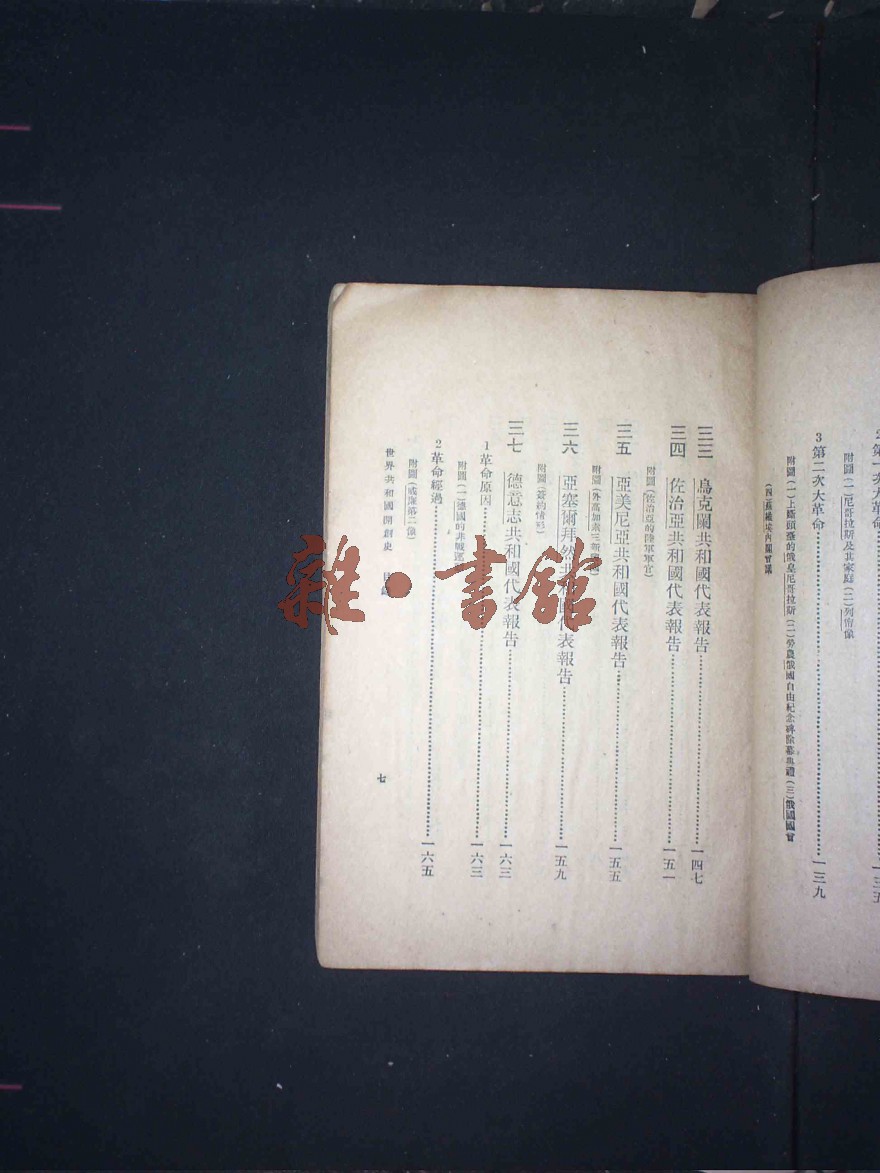 2第一次大革命……一三五
附圖(一)尼哥拉斯及其家庭(二)列甯像
3第二次大革命……一三九
附圖(一)上斷頭臺的俄皇尼哥拉斯(二)勞農俄國自由紀念碑除幕典禮(三)俄國國會
三三 烏克蘭共和國代表報告……一四七
三四 佐治亞共和國代表報告……一五一
附圖(佐治亞的陸軍軍官)
三五 亞美尼亞共和國代表報告……一五五
附圖(外高加索三
三六 亞塞爾拜然共和國代表報告……一五九
附圖(簽約情形)
三七 德意志共和國代表報告……一六三
1革命原因……一六三
附圖(一)德國的非戰運
2革命經過……一六五
附圖(威廉第二像)
世界共和國開創史 目錄
七
雜·書館